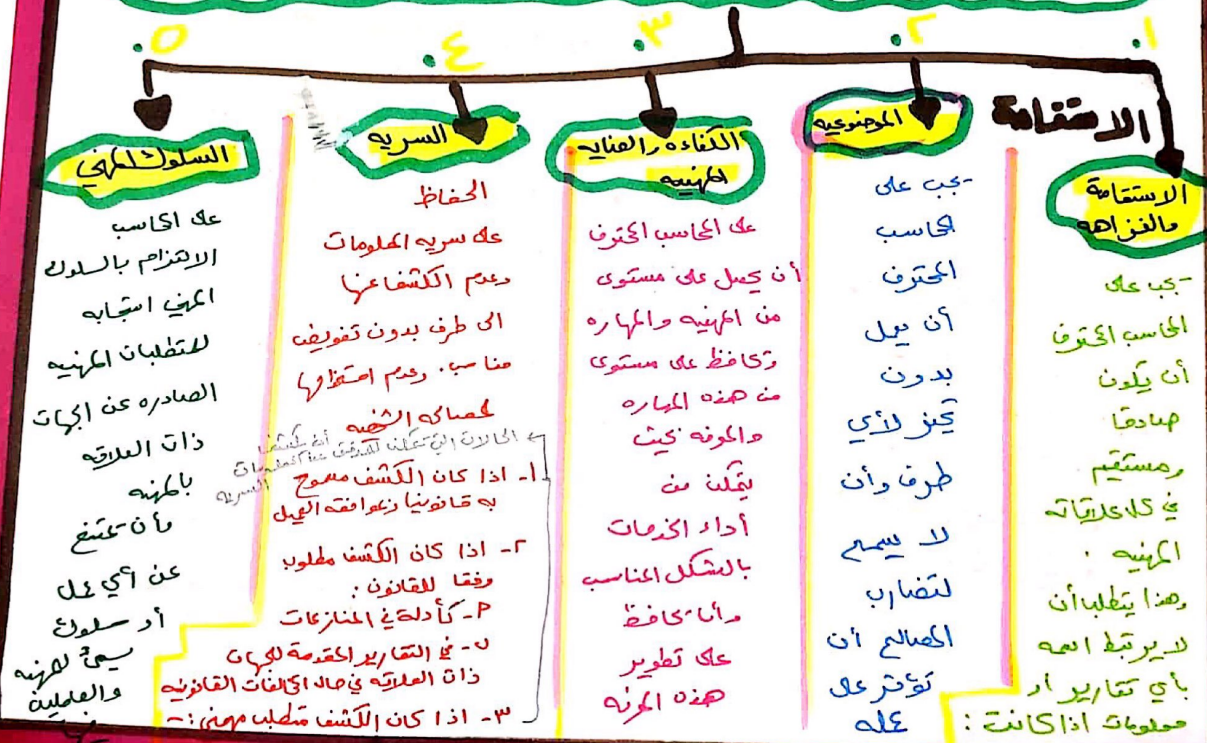 ٠١
٠٢
٠٣
٠٤
٠٥
الاستقامة
الاستقامة
والنزاهه
-يجب على
المحاسب المحترف
أن يكون
صادقا
ومستقيم
في كل علاقاته
المهنيه .
وهذا يتطلب أن
لا يرتبط اسمه
بأي تقارير او
معلومات اذا كانت :
الموضوعيه
-يجب على
المحاسب
المحترف
أن يعمل
بدون
تحيز لأي
طرف وأن
لا يسمح
لتضارب
المصالح أن
تؤثر على
عمله
الكفاءه والعنايه
المهنيه
على المحاسب المحترف
أن يحصل على مستوى
من المهنيه والمهاره
وتحافظ على مستوى
من هذه المهاره
والمعرفه بحيث
يتمكن من
أداء الخدمات
بالشكل المناسب
وأن يحافظ
على تطوير
هذه المعرفه
السريه
الحفاظ
على سريه المعلومات
وعدم الكشف عنها
الى طرف بدون تفويض
مناسب. وعدم استغلالها
لمصالحه الشخصيه
الحالات التي تمكن المدقق أن يكشف عن المعلومات السريه
١- اذا كان الكشف مسموح
به قانونيا وبموافقة العميل
٢- اذا كان الكشف مطلوب
وفقا للقانون :
٢- كأدلة في المنازعات
ب- في التقارير المقدمة للجهات
ذات العلاقه في حال المخالفات القانونيه
٣- اذا كان الكشف متطلب مهني :-
السلوك المهني
على المحاسب
الالتزام بالسلوك
المهني استجابه
للمتطلبات المهنيه
الصادره عن الجهات
ذات العلاقه
بالمهنه
وأن تمتنع
عن أي عمل
أو سلوك
يسيئ للمهنه
والعاملين
فيها